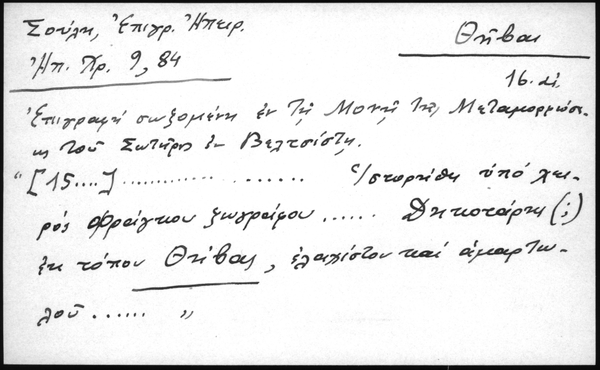 Σούλη, Ἐπιγρ. Ἠπειρ.
Ἠπ. Χρ. 9, 84
Θῆβαι
16. αἰ.
Ἐπιγραφὴ σωζομένη ἐν τῇ Μονῇ τῆς Μεταμορφώσε-
ως τοῦ Σωτῆρος ἐν Βελτσίστῃ.
"[15....] .................. Ἱστορήθη ὑπὸ χει-
ρός Φράγκου ζωγράφου ...... (;)
ἐκ τόπου Θήβας, ἐλαχίστου καί ἁμαρτω-
λοῦ ...... "